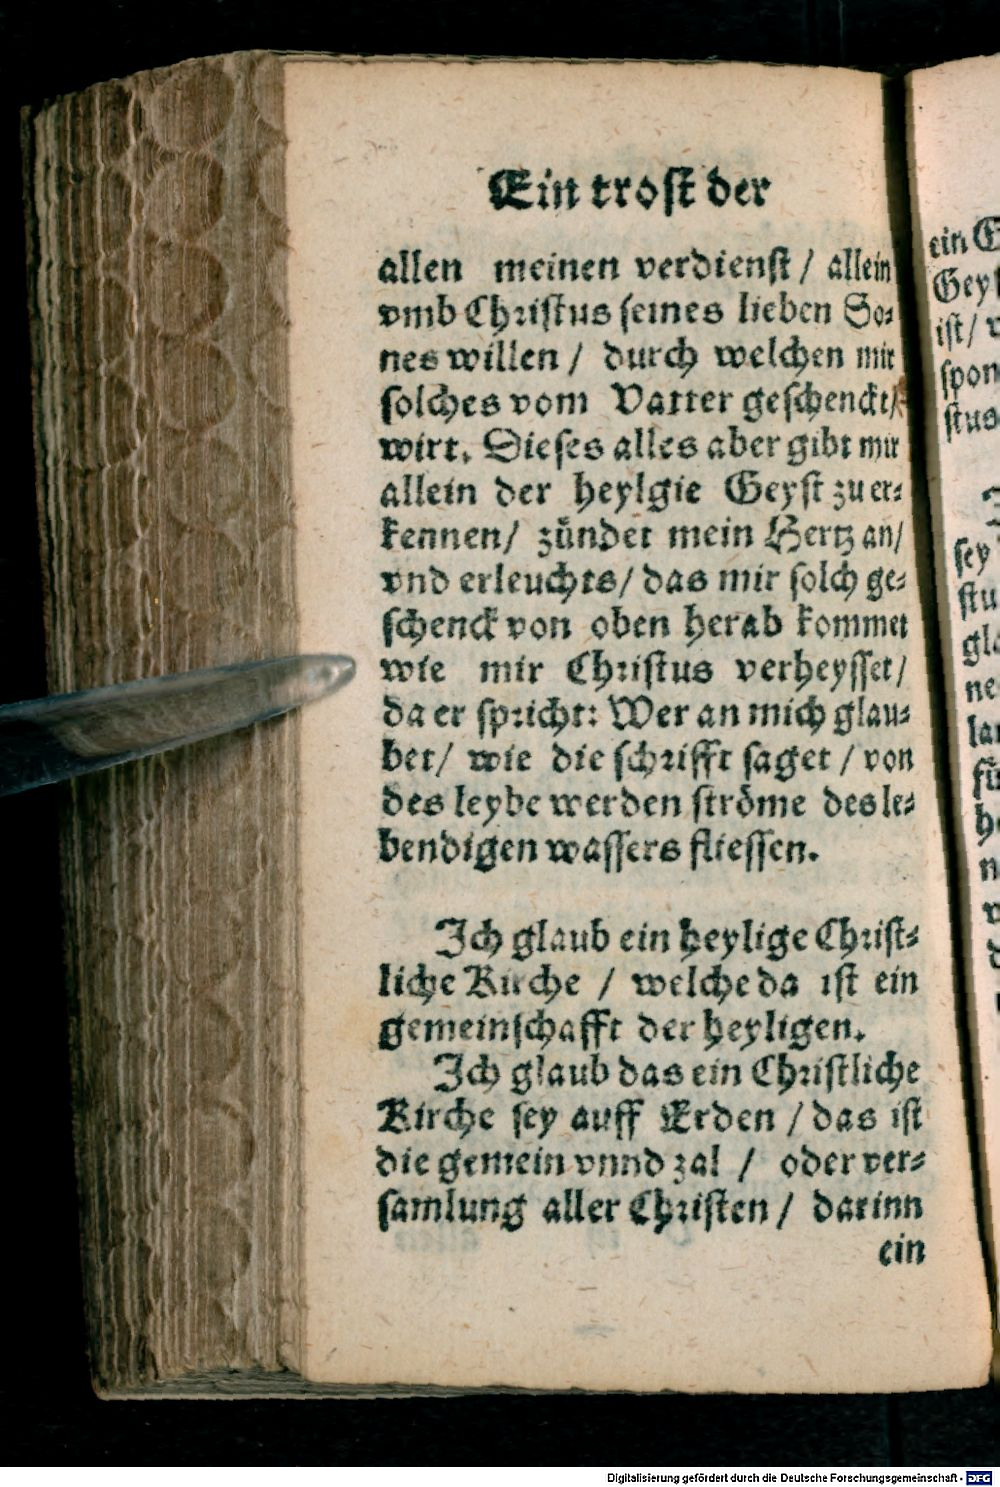 Ein trost der
allen meinen verdienst / allein
vmb Christus seines lieben So⸗
nes willen / durch welchen mir
solches vom Vatter geschenckt /
wirt. Dieses alles aber gibt mir
allein der heylgie Geyst zu er⸗
kennen / zündet mein Hertz an /
vnd erleuchts / das mir solch ge⸗
schenck von oben herab kommet
wie mir Christus verheysset /
da er spricht: Wer an mich glau⸗
bet / wie die schrifft saget / von
des leybe werden ströme des le⸗
bendigen wassers fliessen.
Ich glaub ein heylige Christ⸗
liche Kirche / welche da ist ein
gemeinschafft der heyligen.
Ich glaub das ein Christliche
Kirche sey auff Erden / das ist
die gemein vnnd zal / oder ver⸗
samlung aller Christen / darinn
ein
ein
ist /
stus
sey
Digitalisierung gefördert durch die Deutsche Forschungsgemeinschaft - DFG